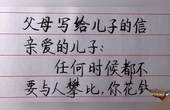 父母写给儿子的信
亲爱的儿子:
任何时候都不
要与人攀比,你花钱